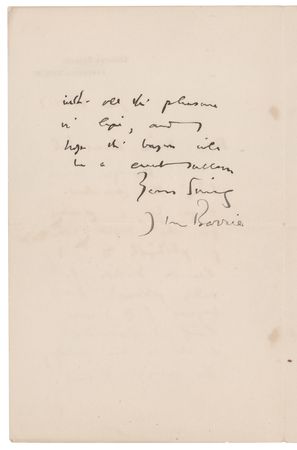 with all the pleasure
in life, and
hope the bazaar will
be a great success
Yours Sincy
J M Barrie